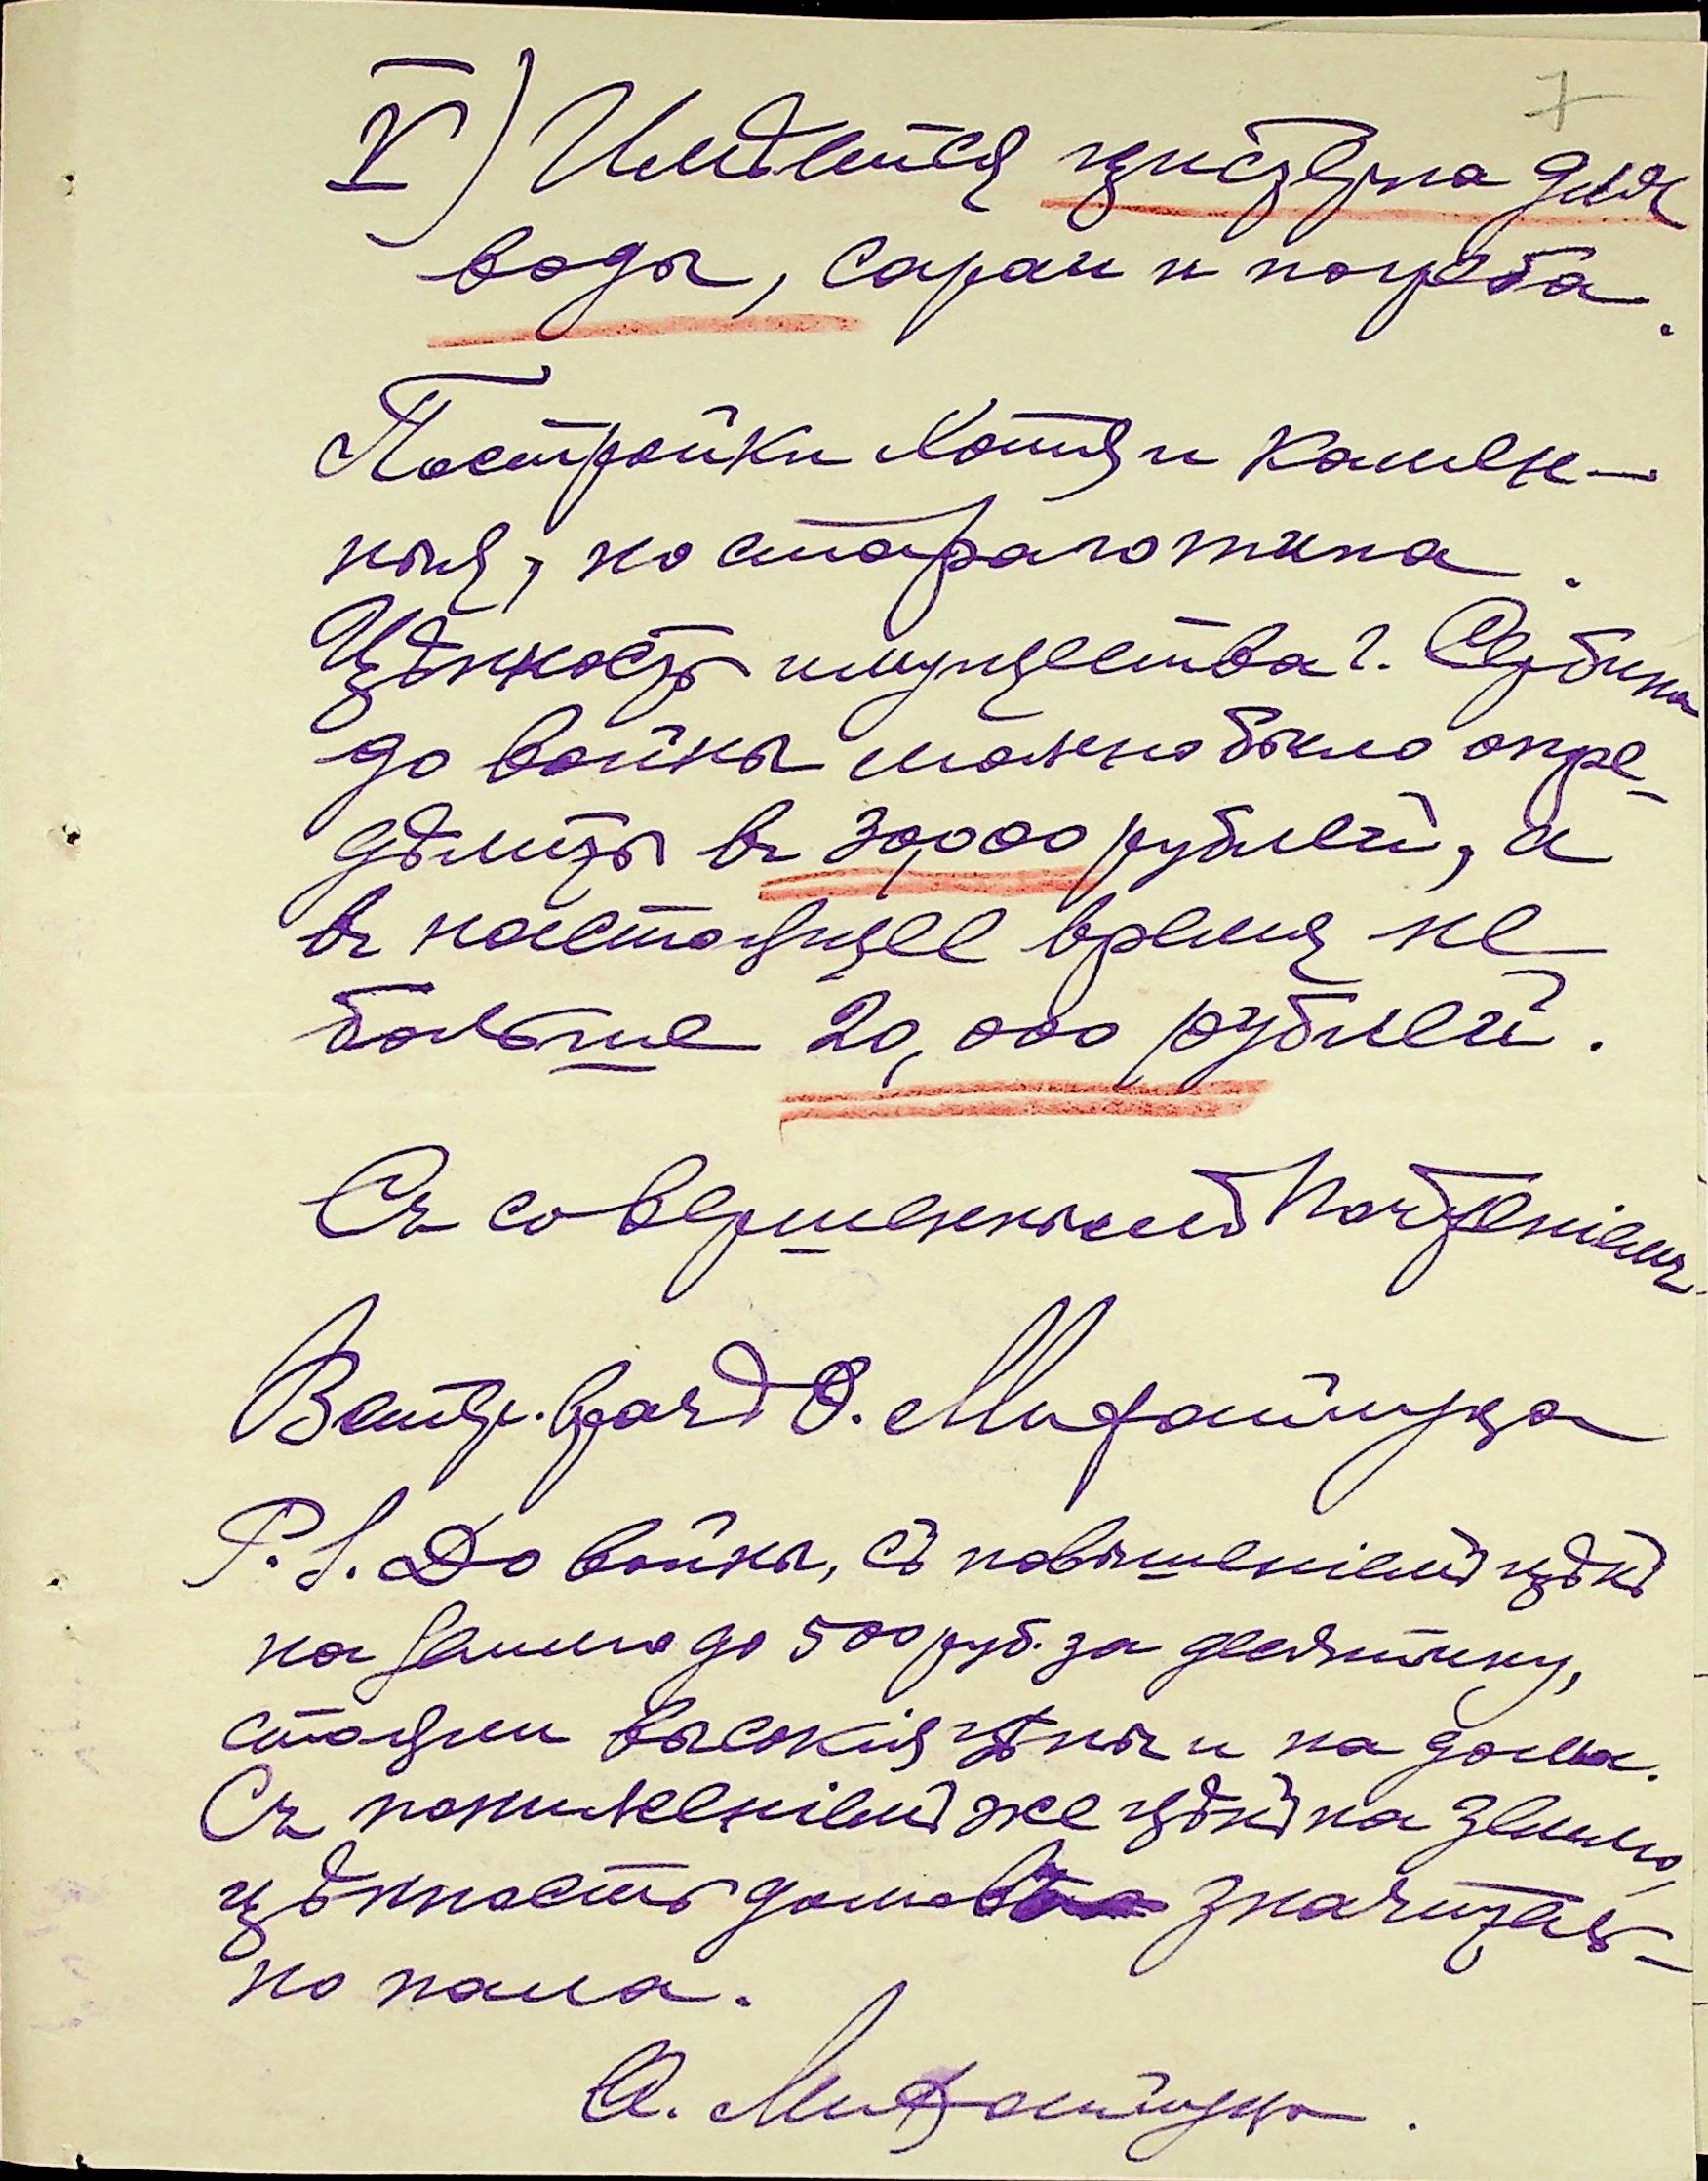 7
V) Имѣется цистерна для
воды, сараи и погреба.
Постройки хотя и камен-
ныя, но стараго типа.
Цѣнность имущества г. Сербина
до войны можно было опре-
дѣлить въ 30,000 рублей, а
въ настоящее время не
больше 20,000 рублей.
Съ совершеннымъ почтеніемъ
Ветер. врачъ О.
P.S. До войны, съ повышеніемъ цѣнъ
на землю до 500 руб. за десятину,
стояли высокія цѣны и на дома.
Съ пониженіемъ же цѣнъ на землю,
цѣнность домовъ значитель-
но пала.
О.